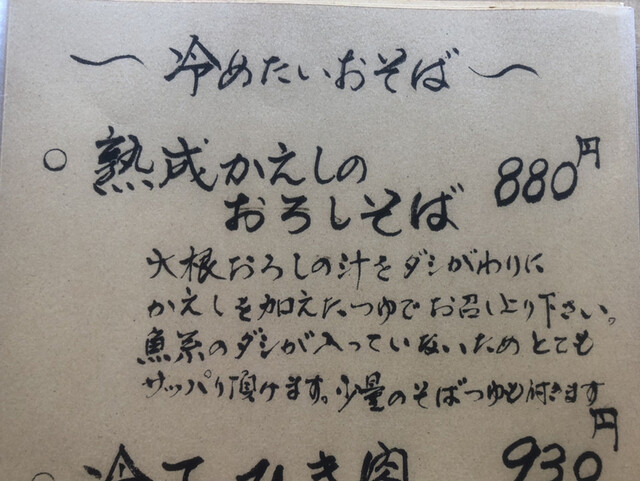 〜冷めたいおそば〜
○ 熟成かえしの
おろしそば 880円
大根おろしの汁をダシがわりに
かえしを加えたつゆでお召し上り下さい。
魚系のダシが入っていないためとても
サッパリ頂けます。少量のそばつゆも付きます
○ 冷て ひき肉 930円